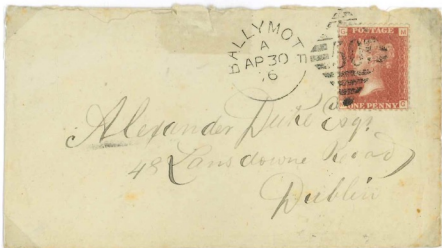 BALLYMOTE
A
AP 30
76
POSTAGE
ONE PENNY
Alexander Duke Esqr
48 Lansdowne Road
Dublin